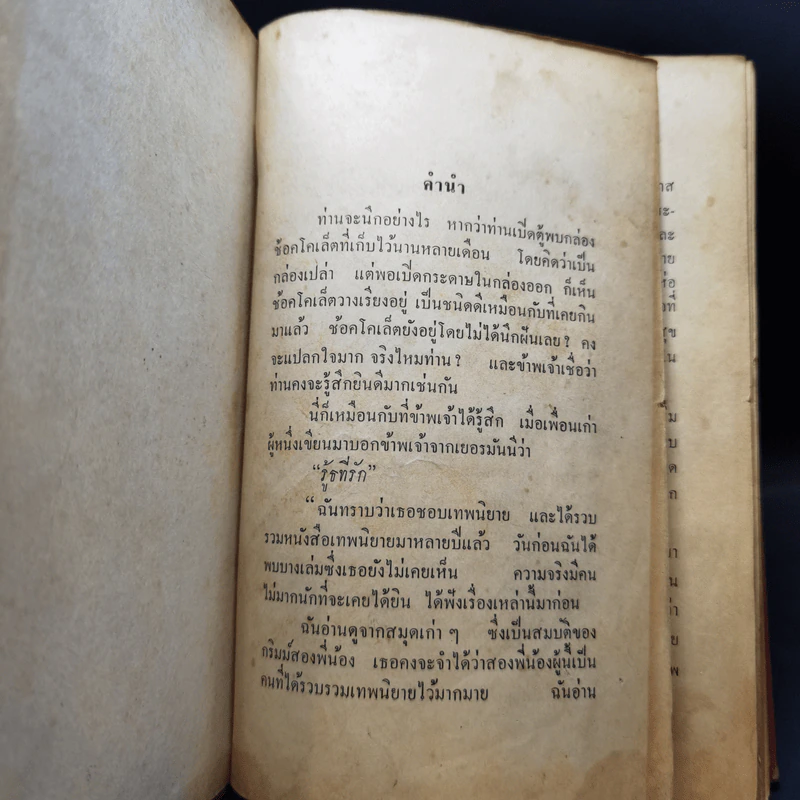 คำนำ
ท่านจะนึกอย่างไร หากว่าท่านเปิดตู้พบกล่อง
ช้อคโคเล็ตที่เก็บไว้นานหลายเดือน โดยคิดว่าเป็น
กล่องเปล่า แต่พอเปิดกระดาษในกล่องออก ก็เห็น
ช้อคโคเล็ตวางเรียงอยู่ เป็นชนิดดีเหมือนกับที่เคยกิน
มาแล้ว ช้อคโคเล็ตยังอยู่โดยไม่ได้นึกฝันเลย? คง
จะแปลกใจมาก จริงไหมท่าน? และข้าพเจ้าเชื่อว่า
ท่านคงจะรู้สึกยินดีมากเช่นกัน
นี่ก็เหมือนกับที่ข้าพเจ้าได้รู้สึก เมื่อเพื่อนเก่า
ผู้หนึ่งเขียนมาบอกข้าพเจ้าจากเยอรมันนีว่า
“รู้ธที่รัก”
“ฉันทราบว่าเธอชอบเทพนิยาย และได้รวบ
รวมหนังสือเทพนิยายมาหลายปีแล้ว วันก่อนฉันได้
พบบางเล่มซึ่งเธอยังไม่เคยเห็น ความจริงมีคน
ไม่มากนักที่จะเคยได้ยิน ได้ฟังเรื่องเหล่านี้มาก่อน
ฉันอ่านดูจากสมุดเก่า ๆ ซึ่งเป็นสมบัติของ
กริมม์สองพี่น้อง เธอคงจะจำได้ว่าสองพี่น้องผู้นี้เป็น
คนที่ได้รวบรวมเทพนิยายไว้มากมาย ฉันอ่าน